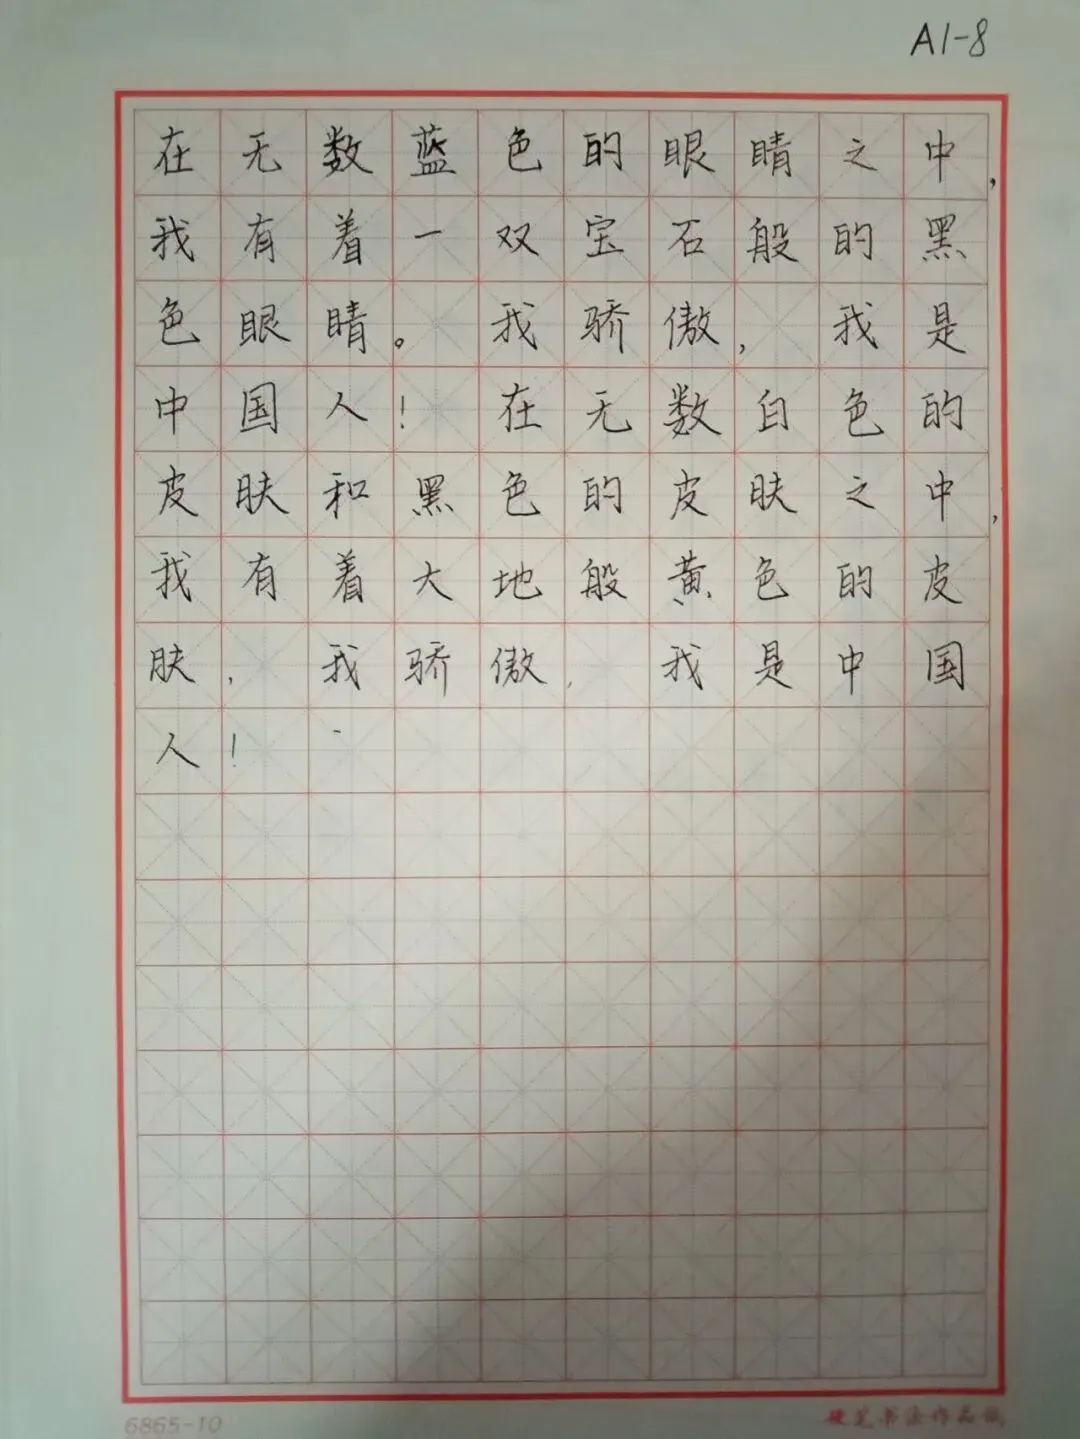 A1-8
在无数蓝色的眼睛之中,
我有着一双宝石般的黑
色眼睛。 我骄傲, 我是
中国人! 在无数白色的
皮肤和黑色的皮肤之中,
我有着大地般黄色的皮
肤, 我骄傲, 我是中国
人!
6865-10
硬笔书法作品纸